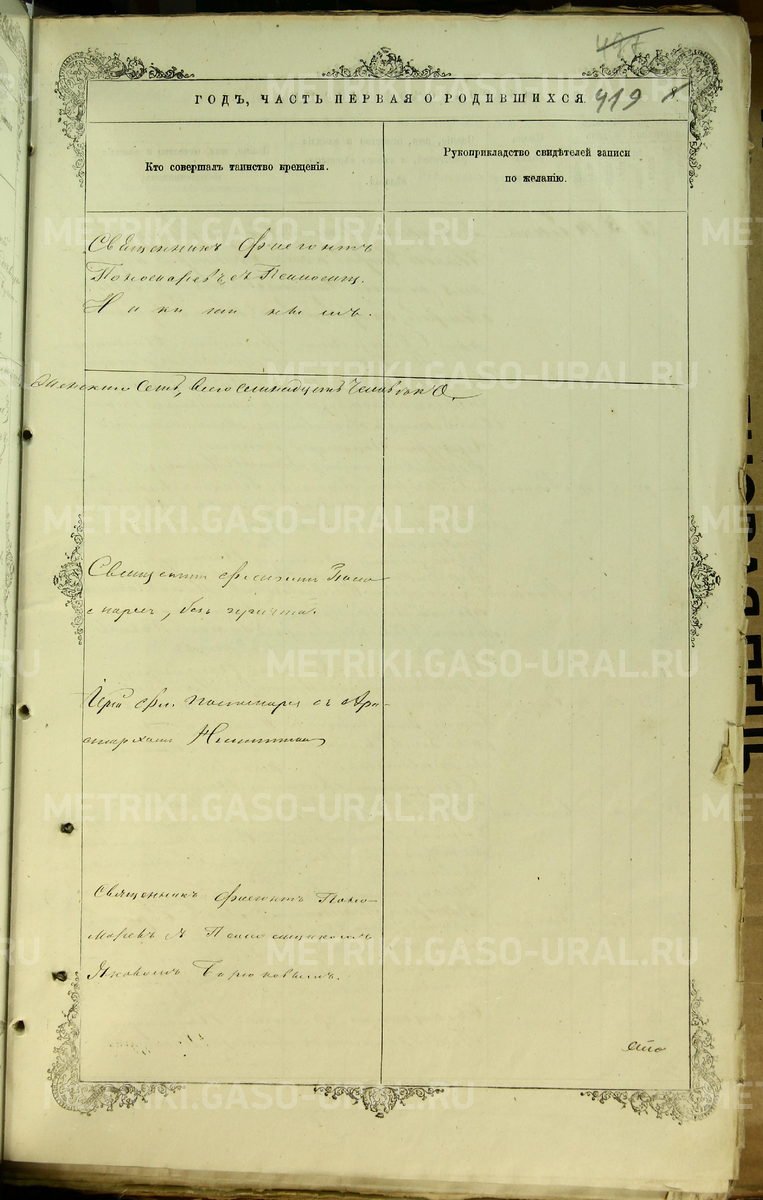 487
419
ГОДЪ, ЧАСТЬ ПЕРВАЯ О РОДИВШИХСЯ.
Кто совершалъ таинство крещенія.
Рукоприкладство свидѣтелей записи
по желанію.
Священникъ Флегонтъ
Пономаревъ съ Псаломщ.
Никитинымъ.
женскаго семь, всего семнадцать человѣкъ
Священникъ Флегонтъ Поно-
маревъ, безъ причта.
Іерей Фле. Пономаревъ съ Ари-
стархомъ Никитинымъ
Священникъ Флегонтъ Поно-
маревъ и Псаломщикомъ
Яковомъ Бирюковымъ.
METRIKI.GASO-URAL.RU